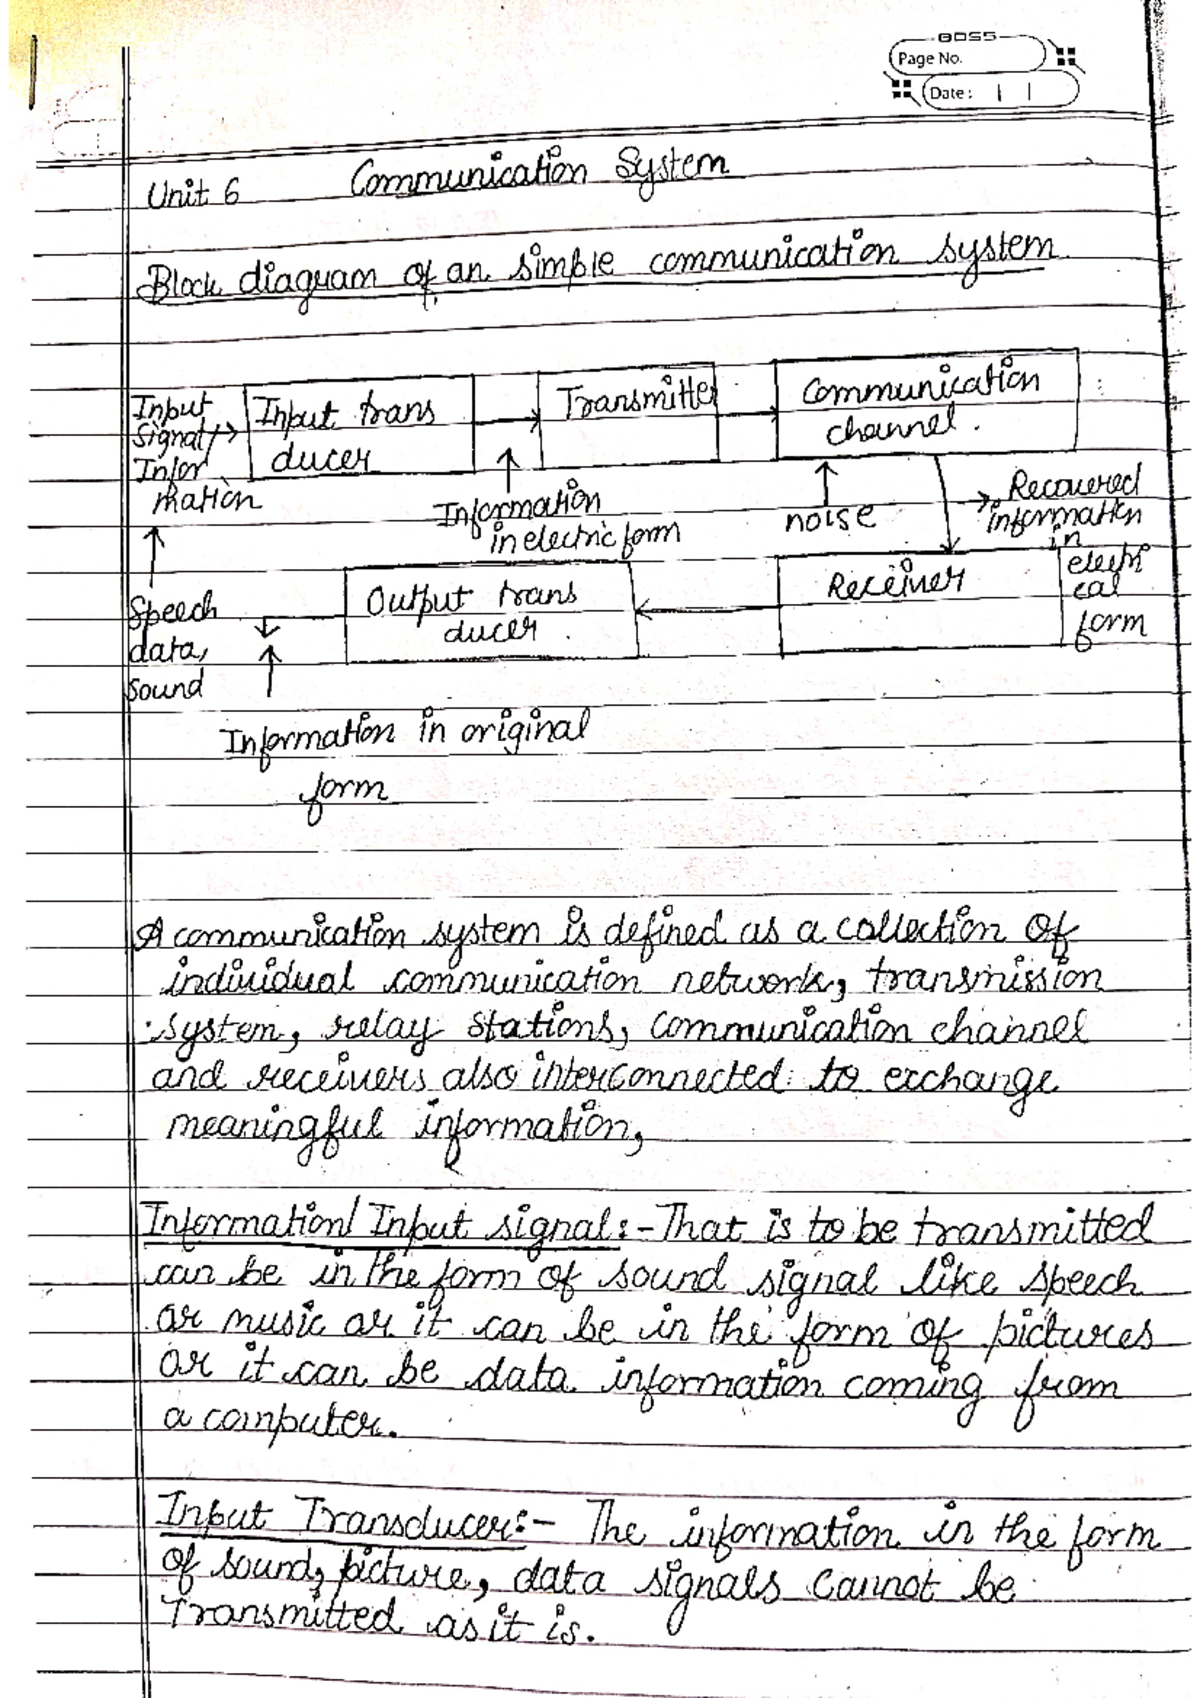 BOSS
Page No.
Date :
Unit 6 Communication System
Block diagram of an simple communication system
Input
Signal/
Infor
mation
Input trans
ducer
Transmitter
Communication
channel.
Information
in electric form
noise
Recovered
information
in
electri
cal
form
Receiver
Output trans
ducer
Speech
data,
sound
Information in original
form
A communication system is defined as a collection of
individual communication network, transmission
system, relay stations, communication channel
and receivers also interconnected to exchange
meaningful information,
Information/ Input signal:- That is to be transmitted
can be in the form of sound signal like speech
or music or it can be in the form of pictures
or it can be data information coming from
a computer.
Input Transducer:- The information in the form
of sound, picture, data signals cannot be
transmitted as it is.